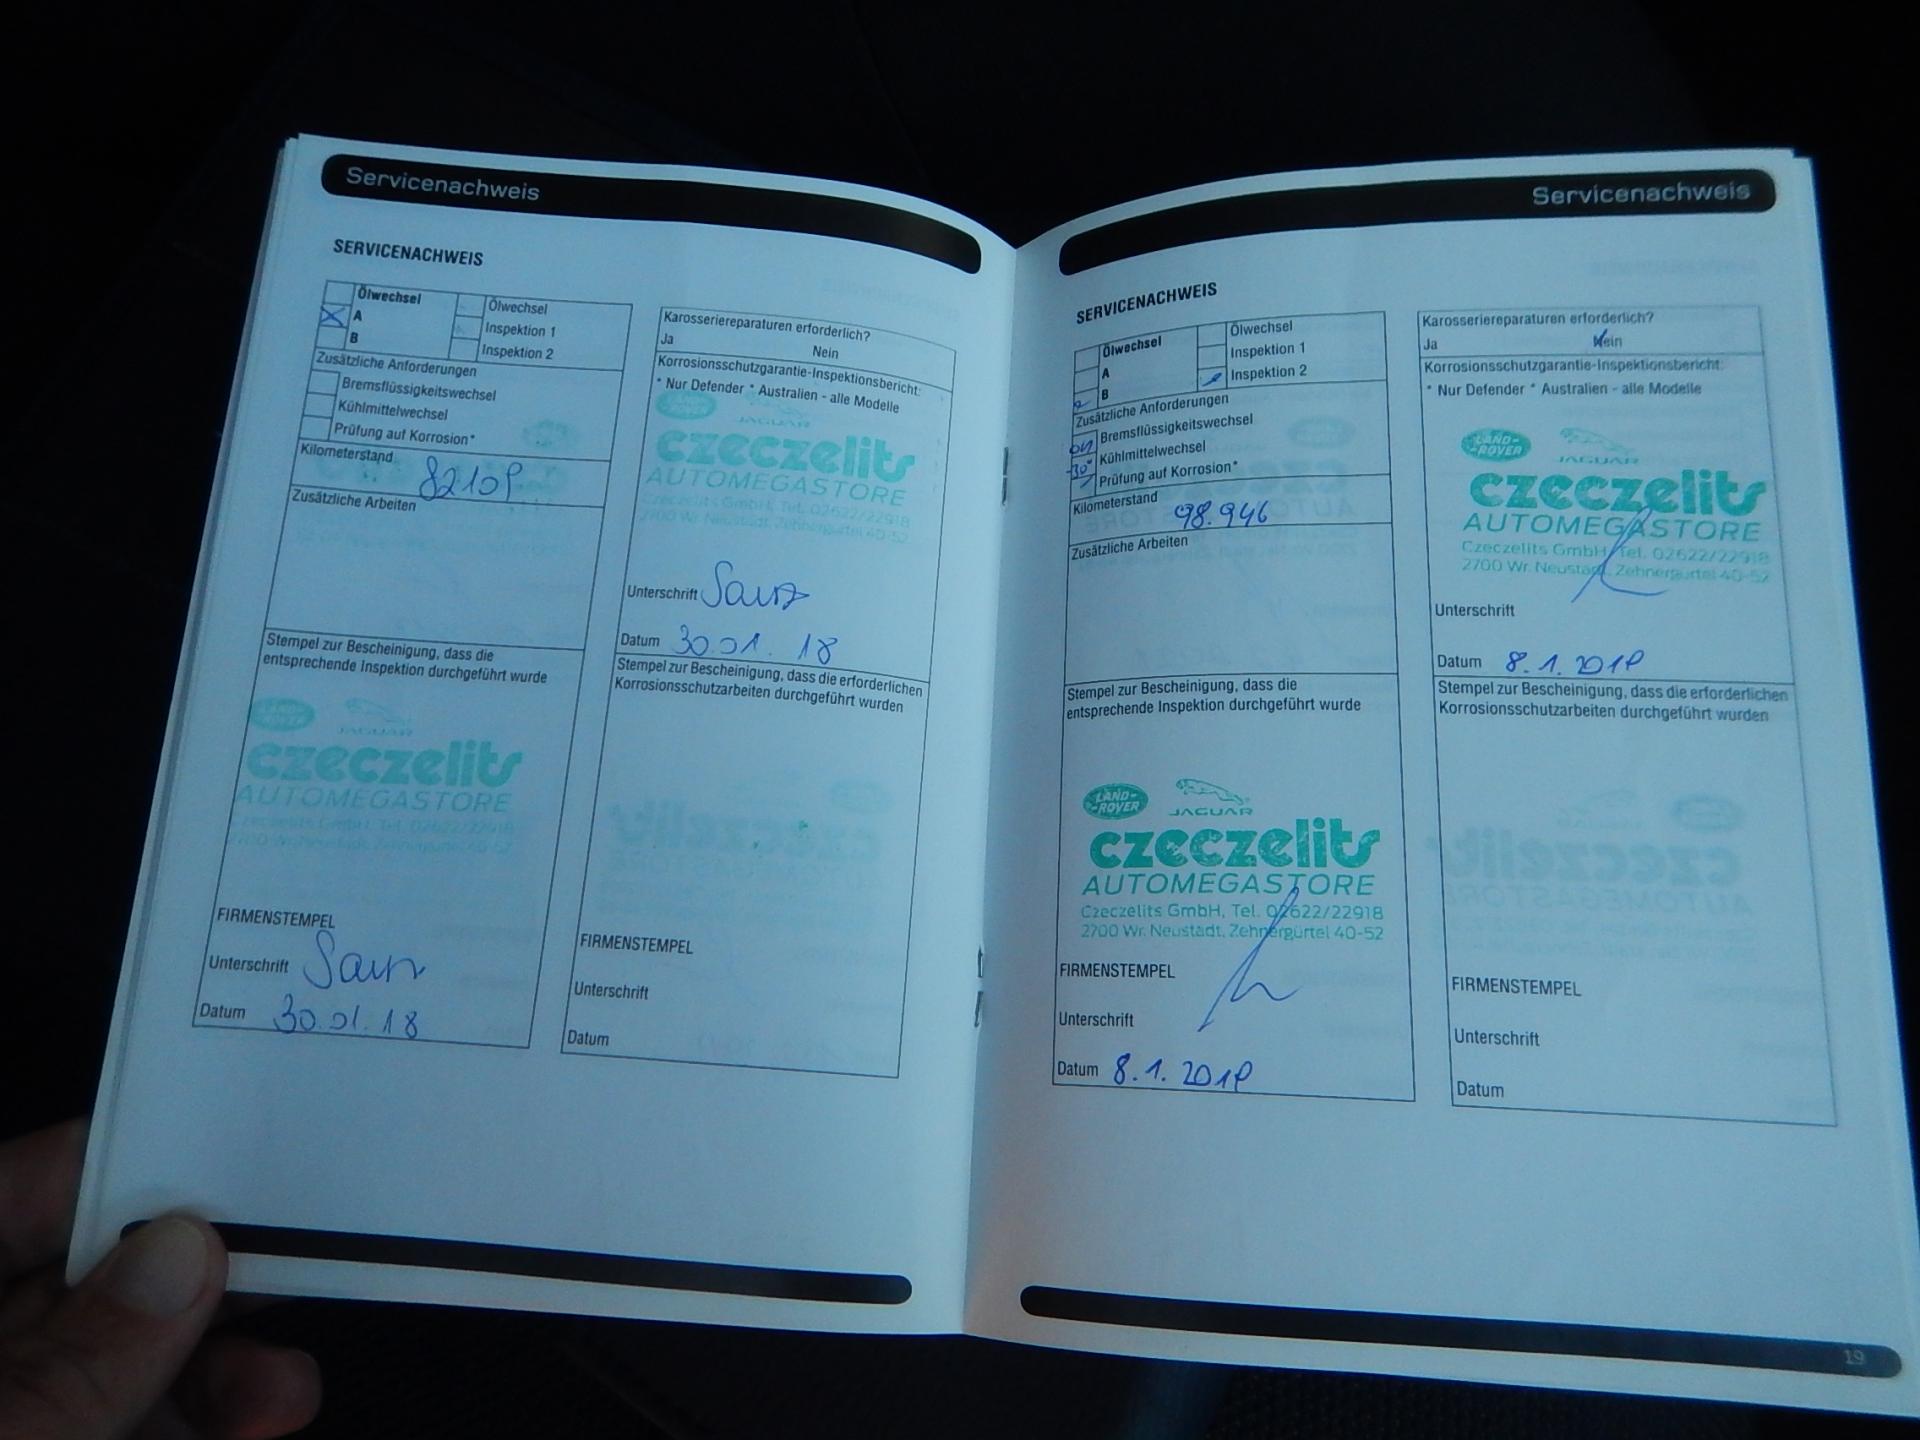 Servicenachweis
SERVICENACHWEIS
Ölwechsel
A
B
Ölwechsel
Inspektion 1
Inspektion 2
Zusätzliche Anforderungen
Bremsflüssigkeitswechsel
Kühlmittelwechsel
Prüfung auf Korrosion*
Kilometerstand 82109
Zusätzliche Arbeiten
Stempel zur Bescheinigung, dass die
entsprechende Inspektion durchgeführt wurde
LAND-
ROVER
JAGUAR
czeczelits
AUTOMEGASTORE
Czeczelits GmbH, Tel. 02622/22918
2700 Wr. Neustadt, Zehnergürtel 40-52
FIRMENSTEMPEL
Unterschrift
Datum 30.01.18
Karosseriereparaturen erforderlich?
Ja Nein
Korrosionsschutzgarantie-Inspektionsbericht:
* Nur Defender * Australien - alle Modelle
LAND-
ROVER
JAGUAR
czeczelits
AUTOMEGASTORE
Czeczelits GmbH, Tel. 02622/22918
2700 Wr. Neustadt, Zehnergürtel 40-52
Unterschrift
Datum 30.01.18
Stempel zur Bescheinigung, dass die erforderlichen
Korrosionsschutzarbeiten durchgeführt wurden
FIRMENSTEMPEL
Unterschrift
Datum
Servicenachweis
SERVICENACHWEIS
Ölwechsel
A
B
Ölwechsel
Inspektion 1
Inspektion 2
Zusätzliche Anforderungen
Bremsflüssigkeitswechsel
Kühlmittelwechsel
-30°
Prüfung auf Korrosion*
Kilometerstand 98.946
Zusätzliche Arbeiten
Stempel zur Bescheinigung, dass die
entsprechende Inspektion durchgeführt wurde
LAND-
ROVER
JAGUAR
czeczelits
AUTOMEGASTORE
Czeczelits GmbH, Tel. 02622/22918
2700 Wr. Neustadt, Zehnergürtel 40-52
FIRMENSTEMPEL
Unterschrift
Datum 8.1.2019
Karosseriereparaturen erforderlich?
Ja Nein
Korrosionsschutzgarantie-Inspektionsbericht:
* Nur Defender * Australien - alle Modelle
LAND-
ROVER
JAGUAR
czeczelits
AUTOMEGASTORE
Czeczelits GmbH, Tel. 02622/22918
2700 Wr. Neustadt, Zehnergürtel 40-52
Unterschrift
Datum 8.1.2019
Stempel zur Bescheinigung, dass die erforderlichen
Korrosionsschutzarbeiten durchgeführt wurden
FIRMENSTEMPEL
Unterschrift
Datum
19